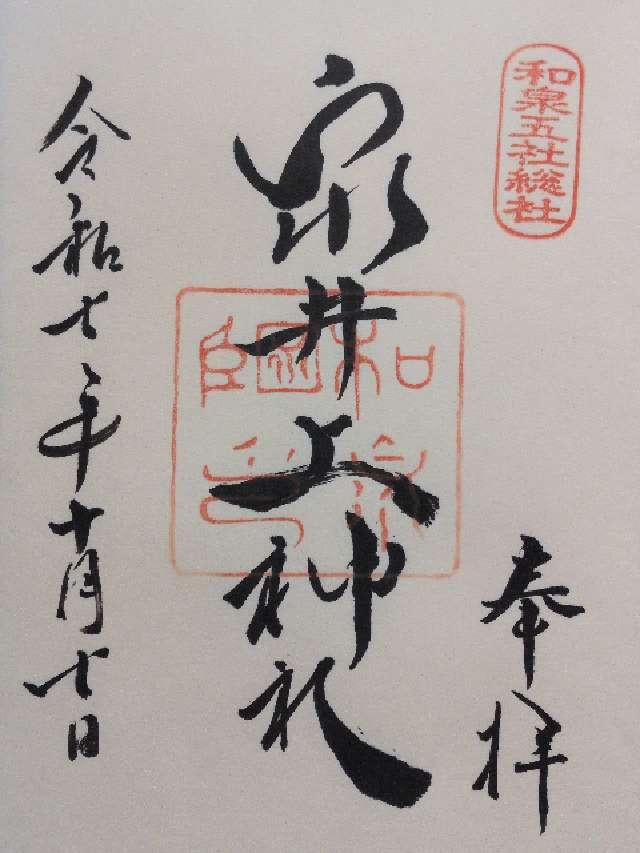 和泉五社総社
奉拝
泉井上神社
令和七年十月七日